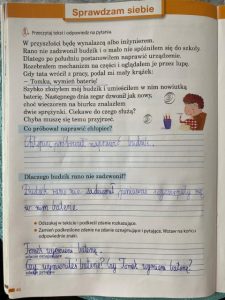 Sprawdzam siebie
1. Przeczytaj tekst i odpowiedz na pytania.
W przyszłości będę wynalazcą albo inżynierem.
Rano nie zadzwonił budzik i o mało nie spóźniłem się do szkoły.
Dlatego po południu postanowiłem naprawić urządzenie.
Rozebrałem mechanizm na części i oglądałem je przez lupę.
Gdy tata wrócił z pracy, podał mi mały krążek:
– Tomku, wymień baterię!
Szybko złożyłem mój budzik i umieściłem w nim nowiutką
baterię. Następnego dnia zegar dzwonił jak nowy,
choć wieczorem na biurku znalazłem
dwie sprężynki. Ciekawe do czego służą?
Chyba muszę się temu przyjrzeć.
Co próbował naprawić chłopiec?
Chłopiec próbował naprawić budzik.
Dlaczego budzik rano nie zadzwonił?
Budzik rano nie zadzwonił ponieważ się
w nim baterie.
Odszukaj w tekście i podkreśl zdanie rozkazujące.
Zamień podkreślone zdanie na zdanie oznajmujące i pytające. Wstaw na końcu
odpowiednie znaki.
Tomek wymienia baterię.
Czy wymieniłeś baterię? Czy Tomek wymieni baterię?